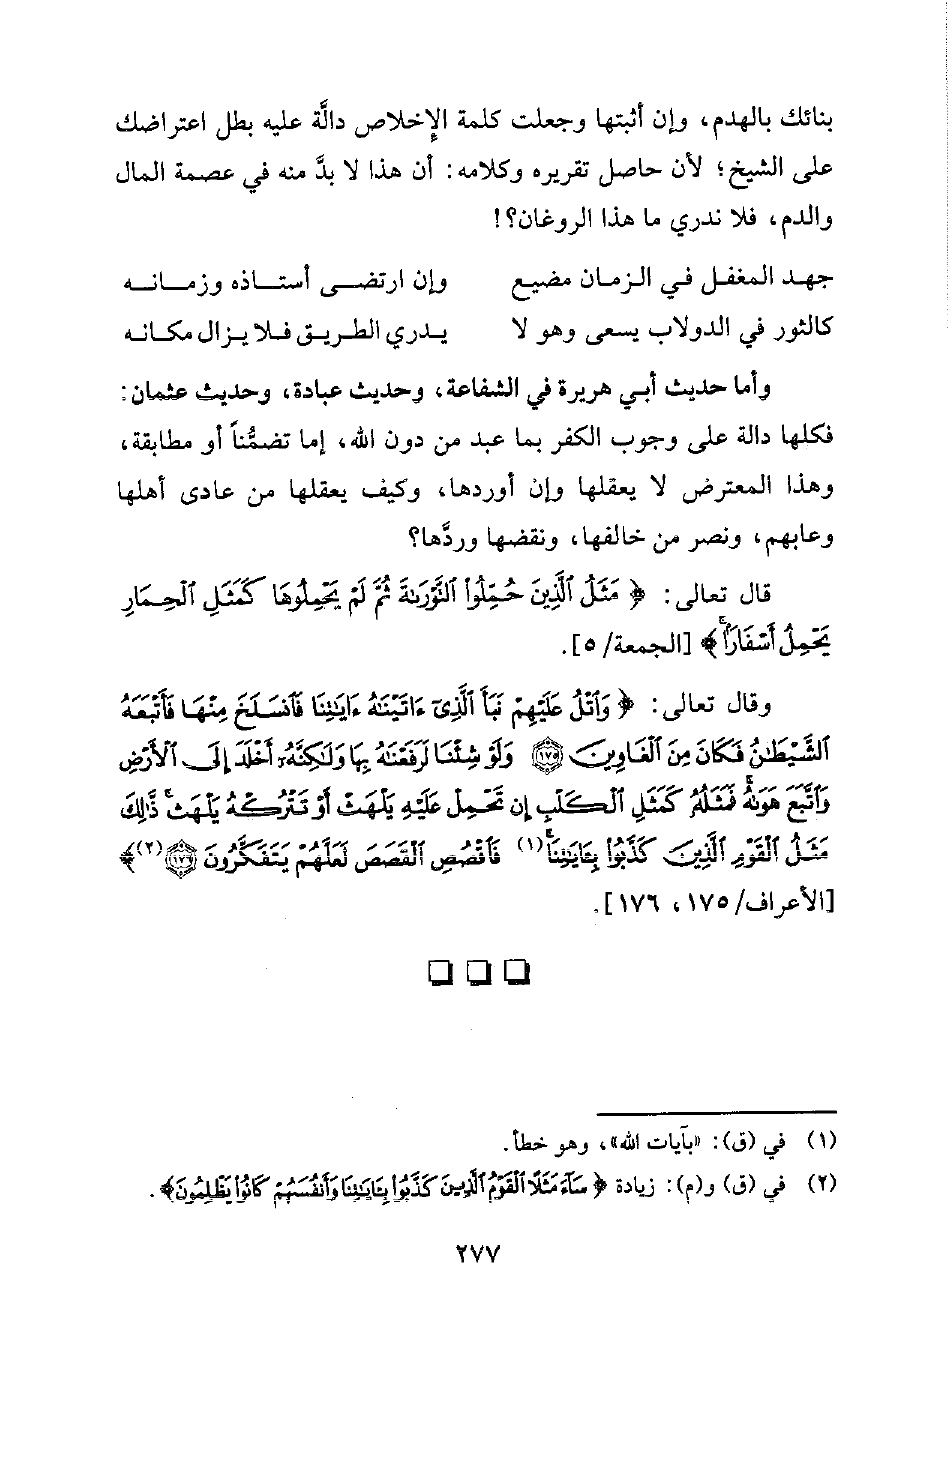 بنائك بالهدم، وإن أثبتها وجعلت كلمة الإخلاص دالَّة عليه بطل اعتراضك
على الشيخ؛ لأن حاصل تقريره وكلامه: أن هذا لا بدَّ منه في عصمة المال
والدم، فلا ندري ما هذا الروغان؟!
جهد المغفل في الزمان مضيع وإن ارتضى أستاذه وزمانه
كالثور في الدولاب يسعى وهو لا يدري الطريق فلا يزال مكانه
وأما حديث أبي هريرة في الشفاعة، وحديث عبادة، وحديث عثمان:
فكلها دالة على وجوب الكفر بما عبد من دون الله، إما تضمُّناً أو مطابقة،
وهذا المعترض لا يعقلها وإن أوردها، وكيف يعقلها من عادى أهلها
وعابهم، ونصر من خالفها، ونقضها وردَّها؟
قال تعالى: ﴿ مَثَلُ ٱلَّذِينَ حُمِّلُوا۟ ٱلتَّوْرَىٰةَ ثُمَّ لَمْ يَحْمِلُوهَا كَمَثَلِ ٱلْحِمَارِ
يَحْمِلُ أَسْفَارًاۚ ﴾ [الجمعة/ ٥].
وقال تعالى: ﴿ وَٱتْلُ عَلَيْهِمْ نَبَأَ ٱلَّذِىٓ ءَاتَيْنَٰهُ ءَايَٰتِنَا فَٱنسَلَخَ مِنْهَا فَأَتْبَعَهُ
ٱلشَّيْطَٰنُ فَكَانَ مِنَ ٱلْغَاوِينَ ١٧٥ وَلَوْ شِئْنَا لَرَفَعْنَٰهُ بِهَا وَلَٰكِنَّهُۥٓ أَخْلَدَ إِلَى ٱلْأَرْضِ
وَٱتَّبَعَ هَوَىٰهُۚ فَمَثَلُهُۥ كَمَثَلِ ٱلْكَلْبِ إِن تَحْمِلْ عَلَيْهِ يَلْهَثْ أَوْ تَتْرُكْهُ يَلْهَثۚ ذَّٰلِكَ
مَثَلُ ٱلْقَوْمِ ٱلَّذِينَ كَذَّبُوا۟ بِـَٔايَٰتِنَاۚ(١) فَٱقْصُصِ ٱلْقَصَصَ لَعَلَّهُمْ يَتَفَكَّرُونَ ١٧٦(٢) ﴾
[الأعراف/ ١٧٥، ١٧٦].
(١) في (ق): «بآيات الله»، وهو خطأ.
(٢) في (ق) و(م): زيادة ﴿ سَآءَ مَثَلًا ٱلْقَوْمُ ٱلَّذِينَ كَذَّبُوا۟ بِـَٔايَٰتِنَا وَأَنفُسَهُمْ كَانُوا۟ يَظْلِمُونَ ﴾.
٢٧٧